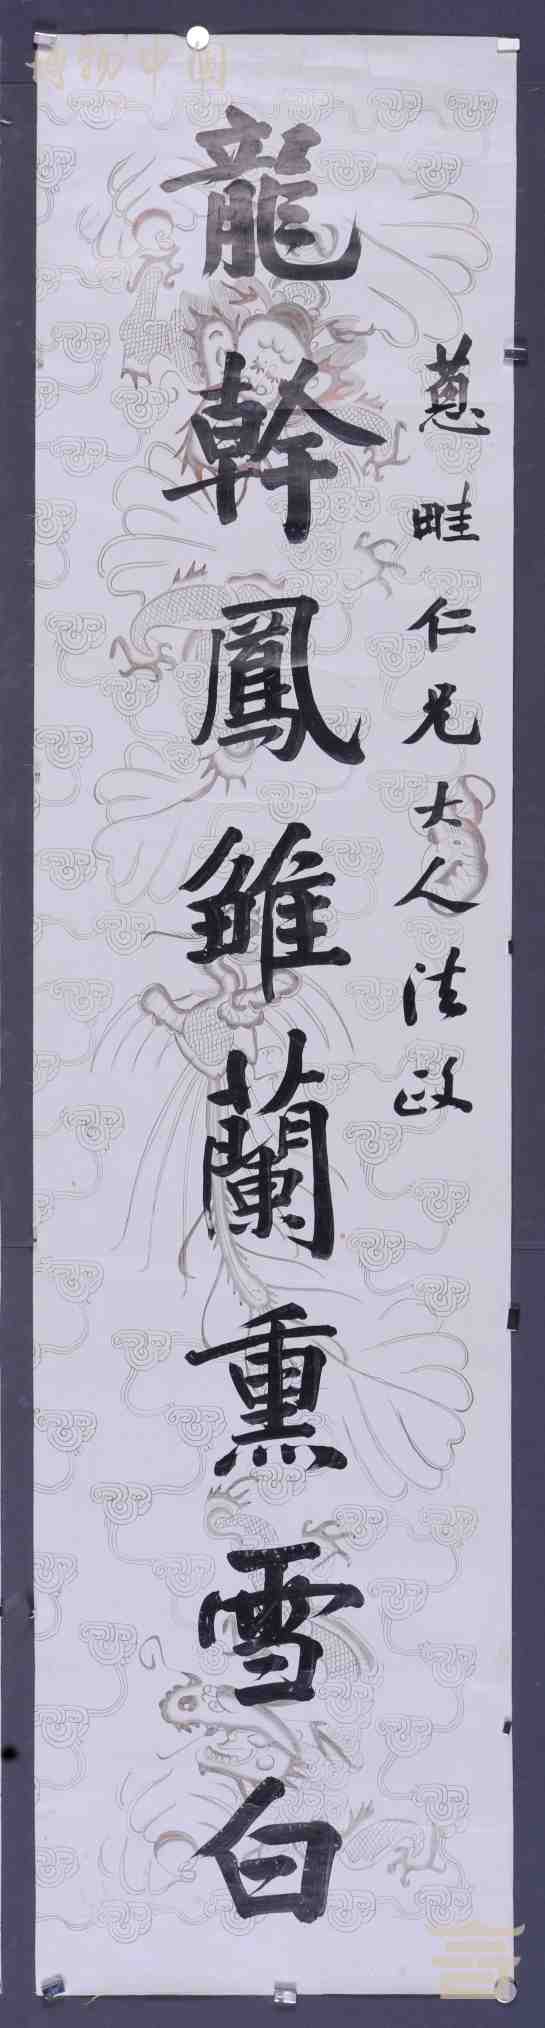 博物中国
蔥畦仁兄大人法政
龍幹鳳雛蘭熏雪白